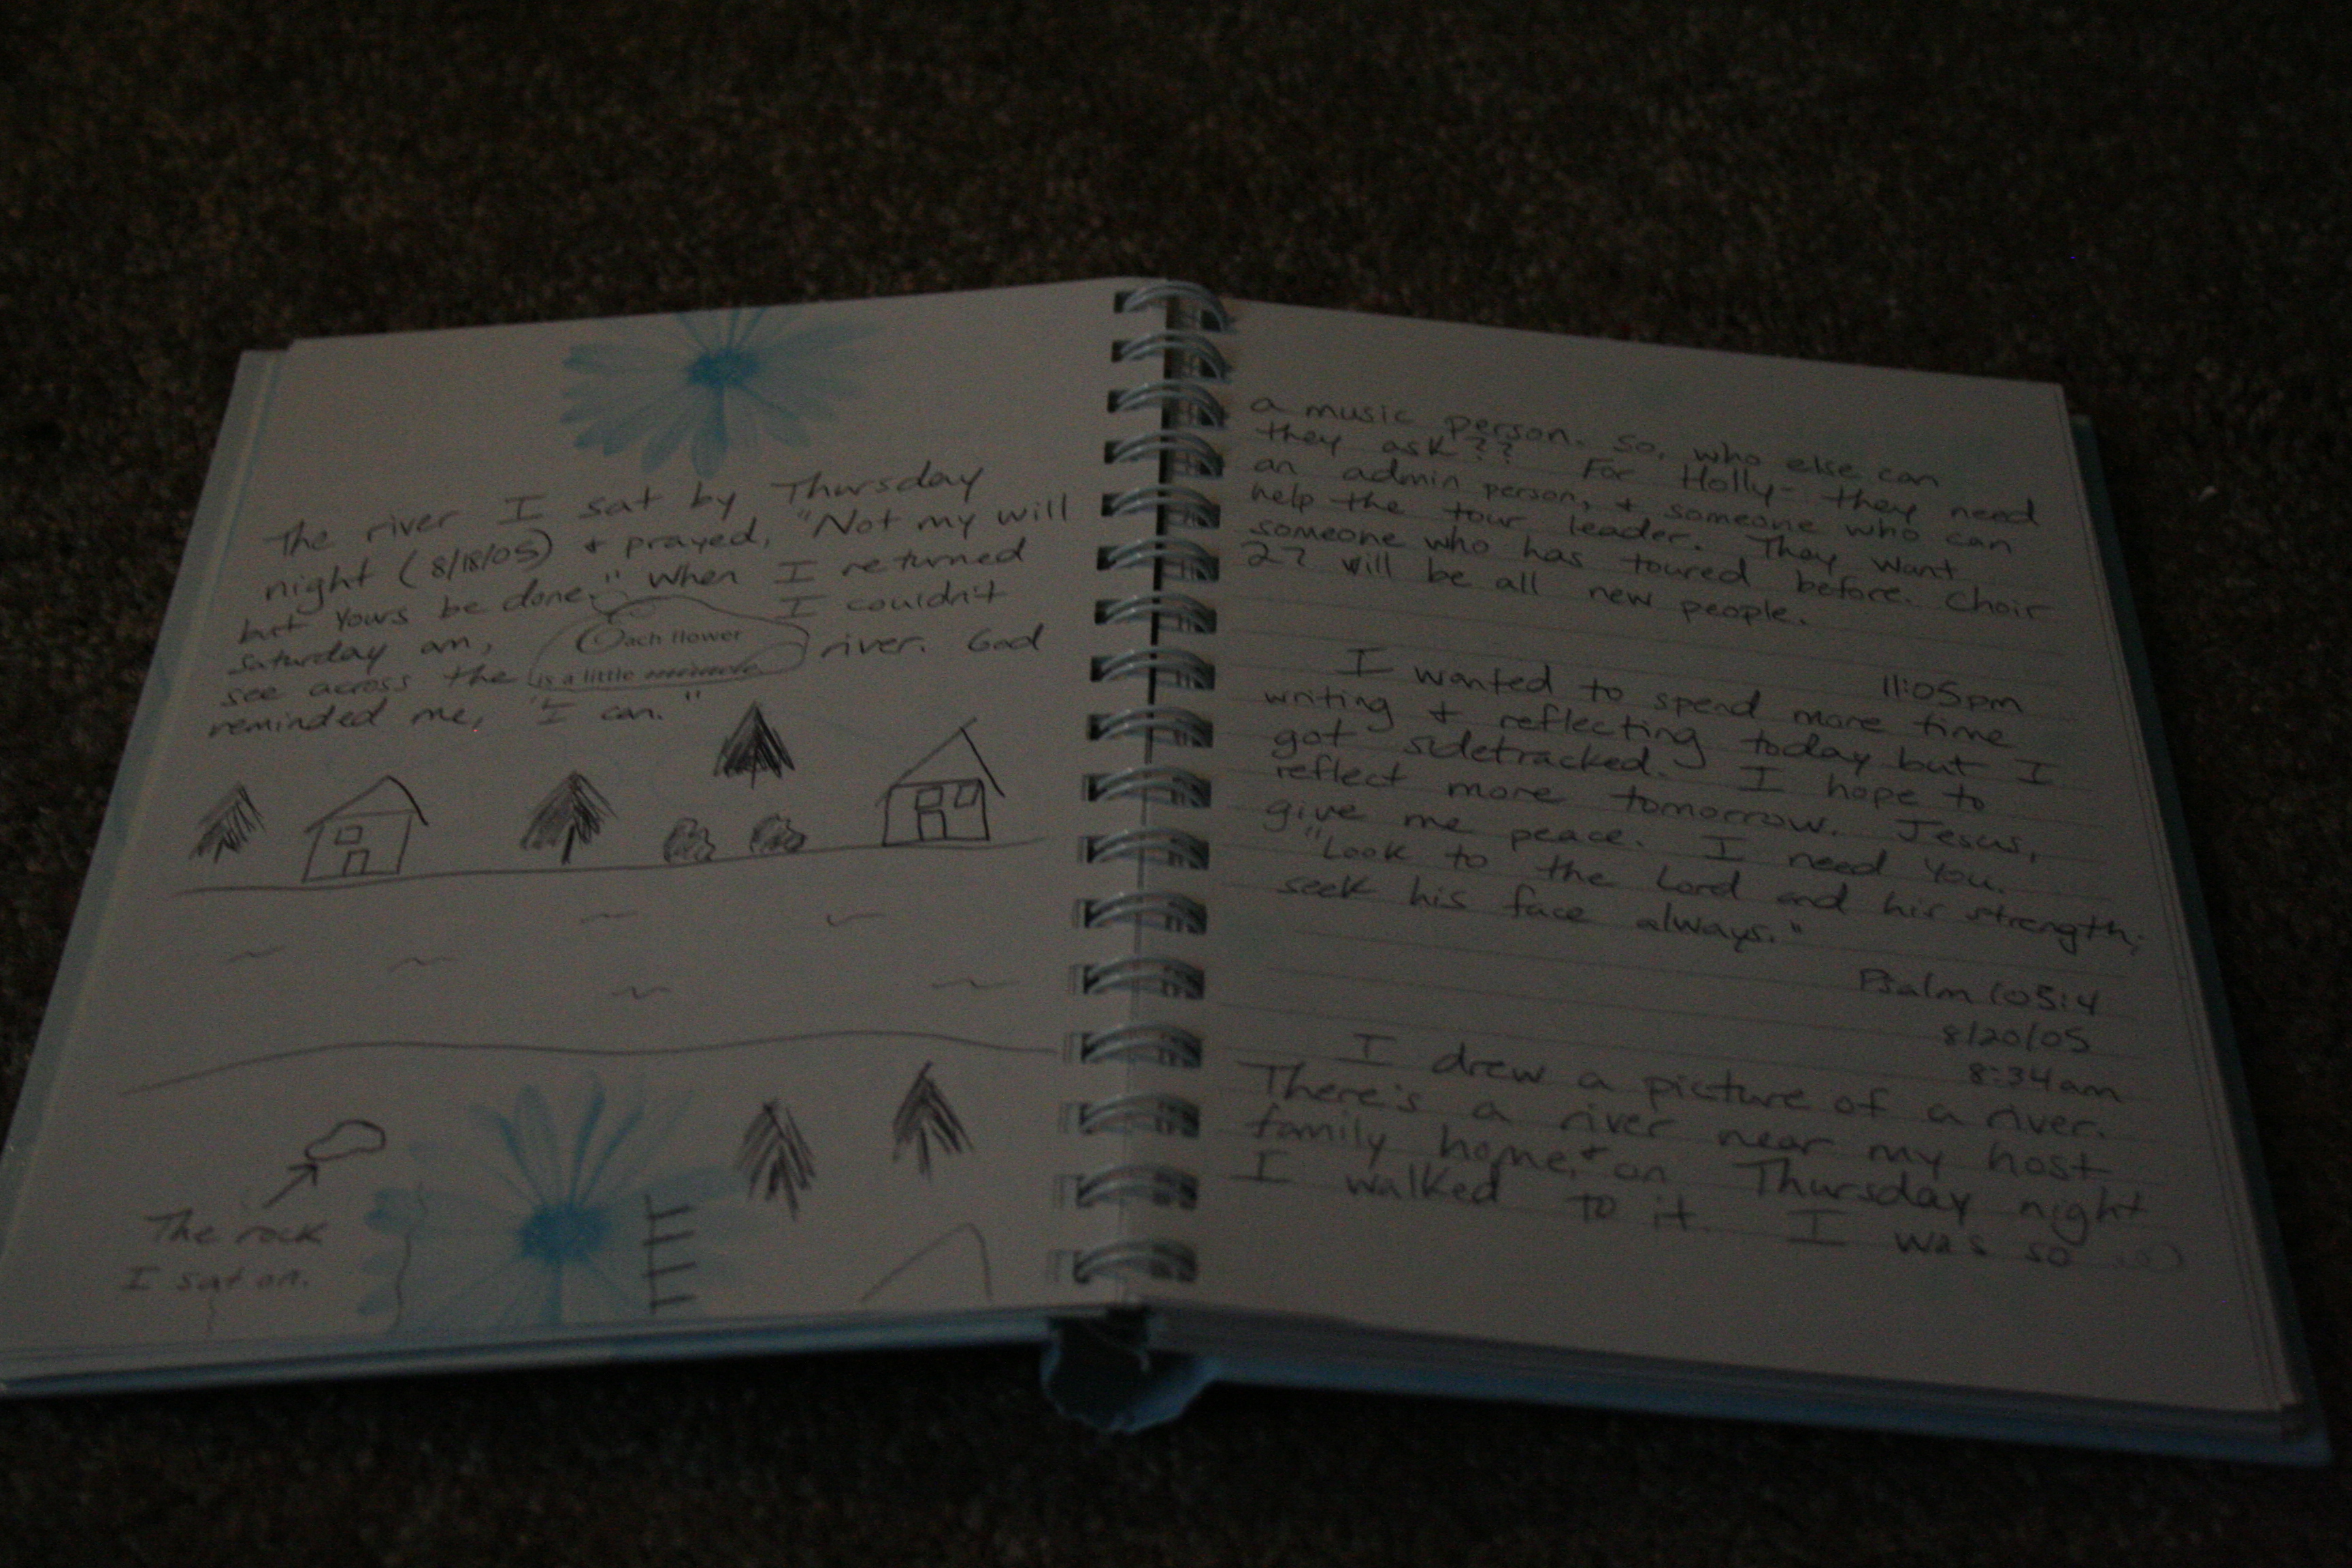 The river I sat by Thursday
night (8/18/05) & prayed, "Not my will
but Yours be done." When I returned
Saturday am, I couldn't
Each flower
see across the river. God
is a little miracle.
reminded me, "I can."
The rock
I sat on.
a music person. So, who else can
they ask?? For Holly - they need
an admin person, & someone who can
help the tour leader. They want
someone who has toured before. Choir
27 will be all new people.
11:05pm
I wanted to spend more time
writing & reflecting today but I
got sidetracked. I hope to
reflect more tomorrow. Jesus,
give me peace. I need You.
"Look to the Lord and his strength;
seek his face always."
Psalm 105:4
8/20/05
8:34am
I drew a picture of a river.
There's a river near my host
family home, & on Thursday night
I walked to it. I was so